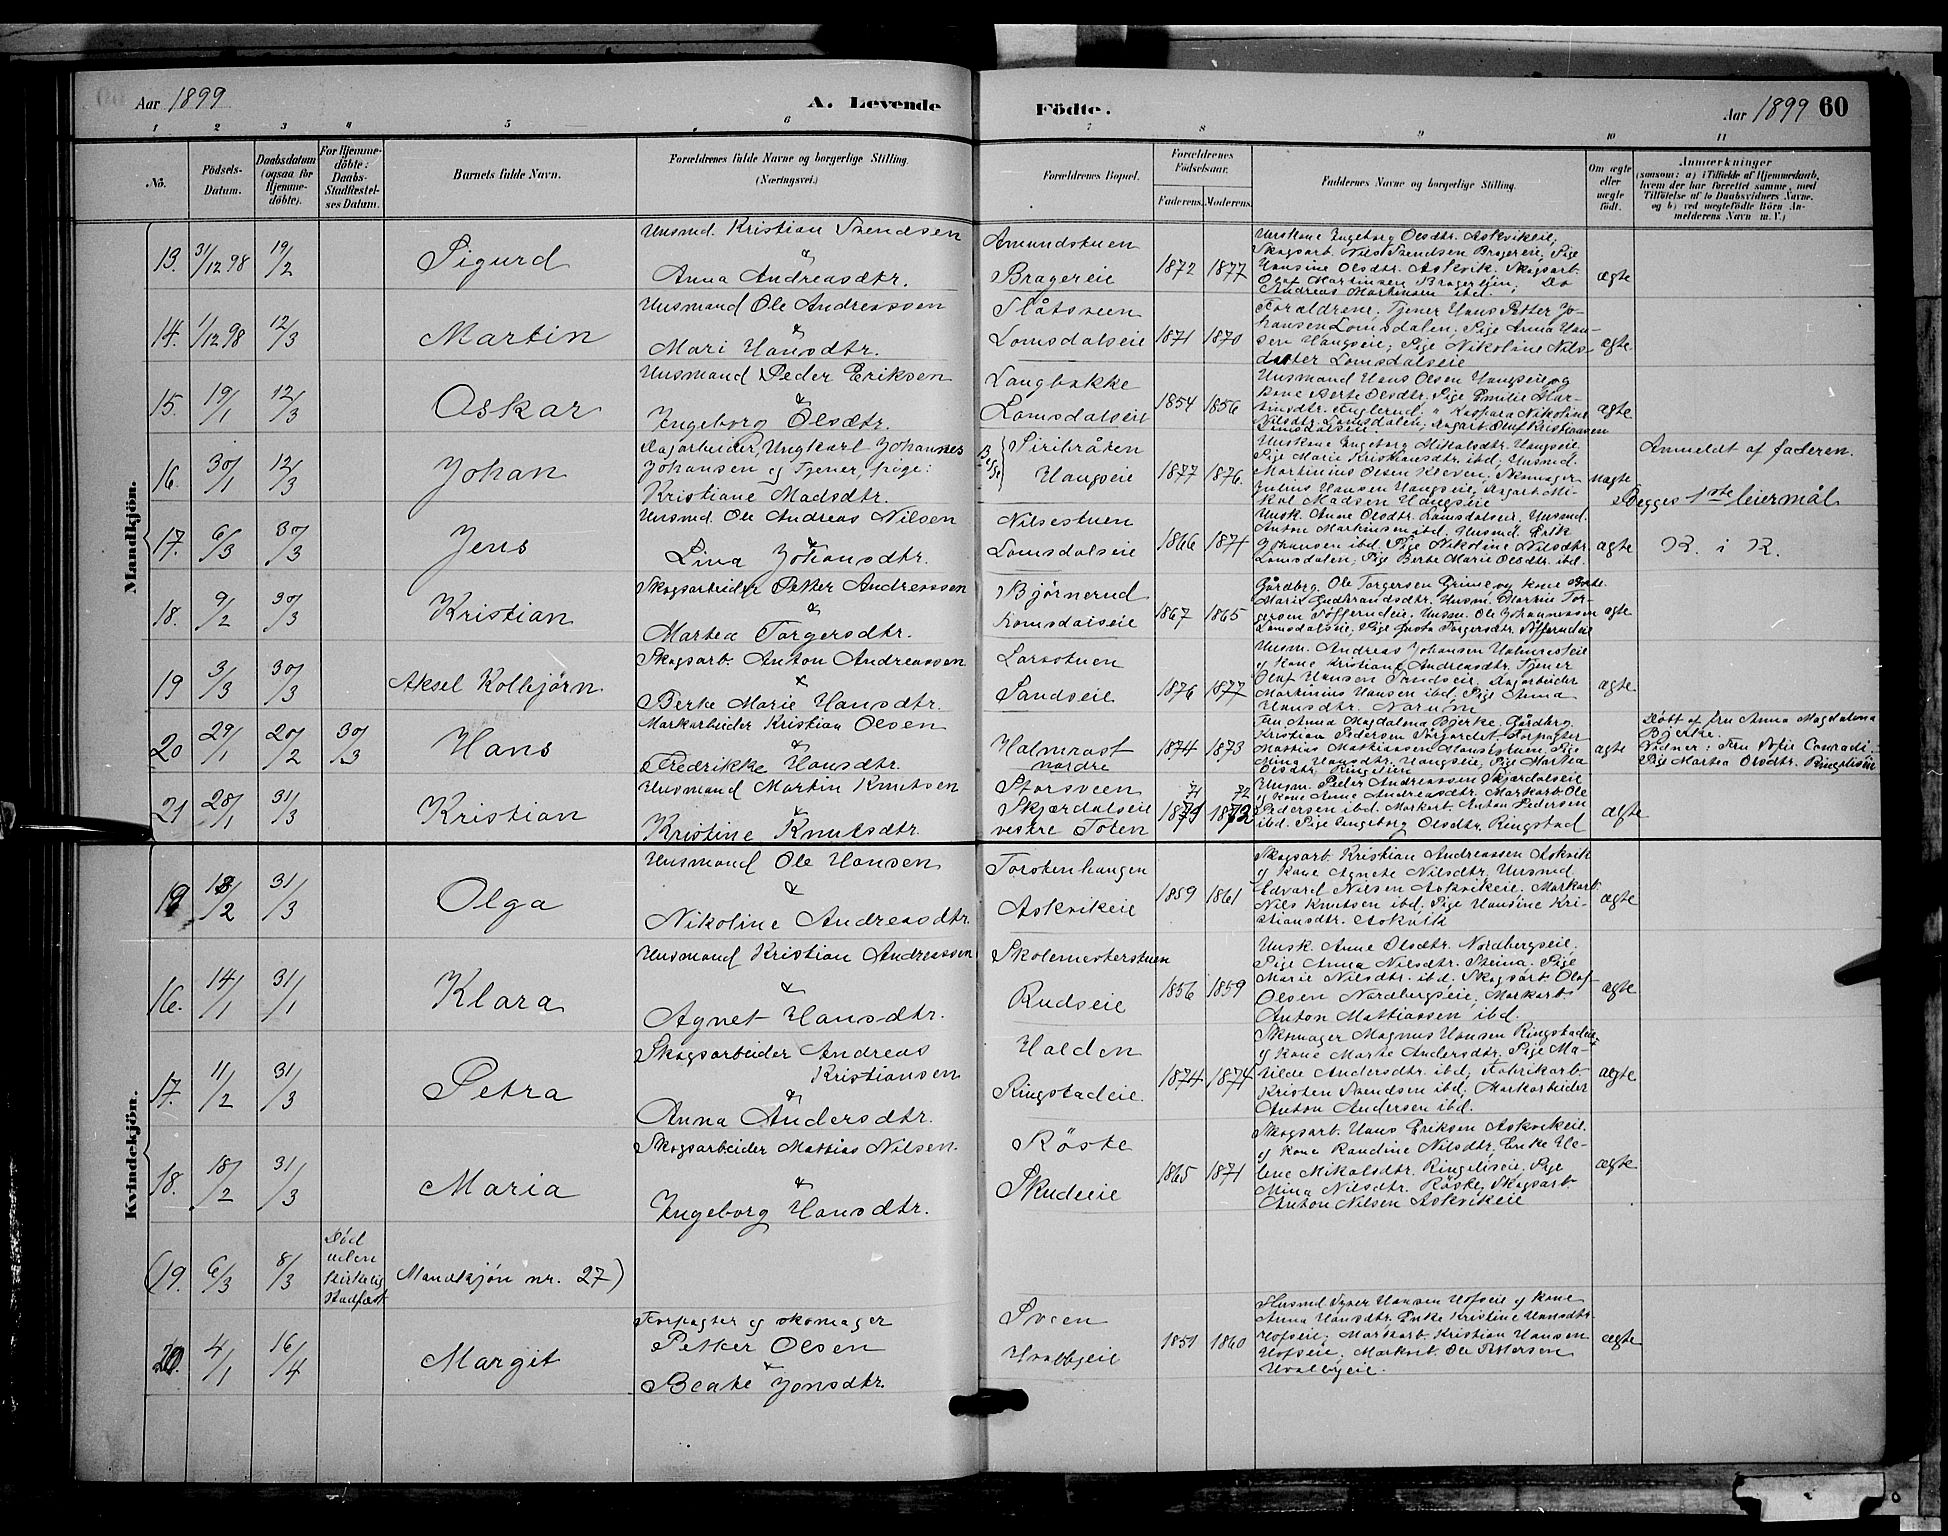 Aar 1899
A. Levende
Födte.
Aar 1899 60
1 2 3 4 5 6 7 8 9 10 11
No.
Födsels-Datum.
Daabsdatum (ogsaa for Hjemme-döbte).
For Hjemme-döbte: Daabs-Stadfæstel-ses Datum.
Barnets fulde Navn.
Forældrenes fulde Navne og borgerlige Stilling. (Næringsvei.)
Forældrenes Bopæl.
Forældrenes Födselsaar.
Faderens. Moderens.
Faddernes Navne og borgerlige Stilling.
Om ægte eller uægte födt.
Anmærkninger
(saasom: a) i Tilfælde af Hjemmedaab, hvem der har forrettet samme, med Tilföielse af to Daabsvidners Navne, og b) ved uægtefödte Börn An-melderens Navn m. V.)
Mandkjön.
13. 31/12 98 19/2 Sigurd
Husmd. Kristian Svendsen
&
Anna Andreasdtr.
Amundstuen
Bragereie
1872 1877
Huskone Ingeborg Olsdtr. Askvikeie,
Skogsarb. Nils Svendsen Bragereie, Pige
Hansine Olsdtr. Askvik. Skogsarb.
Olaf Martinsen Bragereie; Do
Andreas Martinsen ibd.
ægte
14. 1/12 98 12/3 Martin
Husmand Ole Andreassen
&
Mari Hansdtr.
Slåtsveen
Lomsdalseie
1871 1870
Forældrene, Tjener Hans Petter Jo-
hansen Lomsdalen, Pige Anna Han-
sen Haugseie; Pige Nikoline Nils-
datter Lomsdalseie
ægte
15. 19/1 12/3 Oskar
Husmand Peder Eriksen
&
Ingeborg Olsdtr.
Langbakke
Lomsdalseie
1854 1856
Husmand Hans Olsen Haugseie og
kone Berte Olsdtr. Pige Emilie Mar-
tinsdtr. Fuglerud. " Kaspara Nikoline
Nilsdtr. Lomsdalen, Oluf Kristiansen
Lomsdalseie.
ægte
16. 30/1 12/3 Johan
Dagarbeider, Ungkarl Johannes
Johansen og Tjener, pige:
Kristiane Madsdtr.
Begge Siribråten
Haugseie
1877 1876.
Huskone Ingeborg Mikalsdtr. Haugseie,
Pige Marie Kristiansdtr. ibd, Husmd.
Martinius Olsen Kleven, Skomager
Julius Hansen Haugseie, Dagarb. Mi-
kal Madsen Haugseie
uægte
Anmeldt af faderen.
Begges 1ste leiermål
17. 6/3 30/3 Jens
Husmd. Ole Andreas Nilsen
&
Lina Johansdtr.
Nilsestuen
Lomsdalseie
1866 1871
Husk. Anne Olsdtr. Lomsdalseie, Husmd.
Anton Martinsen ibd, Husmd. Erik
Johansen ibd. Pige Nikoline Nilsdtr.
Lomsdalen, Pige Berte Marie Olsdtr. ibd.
ægte
K. i K.
18. 9/2 30/3 Kristian
Skogsarbeider Petter Andreassen
&
Martea Torgersdtr.
Bjørnerud
Lomsdalseie
1867 1865
Gårdbrg. Ole Torgersen Grime og kone Berte
Marie Gudbrandsdtr. Husm. Martin Tor-
gersen Søfferudeie, Husm. Ole Johannessen
Lomsdalseie, Pige Gusta Torgersdtr. Søfferudeie
ægte
19 3/3 30/3 Aksel Kolbjörn
Skogsarb. Anton Andreassen
&
Berte Marie Hansdtr.
Larsstuen
Sandseie
1876 1877
Husm. Andreas Johansen Halmrasteie
og kone Kristiane Andreasdtr. Tjener
Olaf Hansen Sandseie, Dagarbeider
Martinius Hansen ibd. Pige Anna
Hansdtr. Narum
ægte
20 29/1 20/2 30/3 Hans
Markarbeider Kristian Olsen
&
Fredrikke Hansdtr.
Halmrast
nordre
1874 1873
Fru Anna Magdalena Bjerke, Gårdbrg.
Kristian Pedersen Forpagter
Mattias Mattiassen Pige
Mina Hansdtr. Haugseie, Pige Martea
Olsdtr. Ringelien
ægte
Døbt af fru Anna Magdalena
Bjerke.
Vidner: Fru Sofie Conradi.
Pige Martea Olsdtr. Ringelien
21 28/1 31/3 Kristian
Husmand Martin Knutsen
&
Kristine Knutsdtr.
Storsveen
Skjærdalseie
vestre Toten
71 72
1871 1872
Husm. Peder Andreassen Skjærdalseie
og kone Anne Andreasdtr. Markarb. Ole
Pedersen ibd. Markarb. Anton Pedersen
ibd. Pige Ingeborg Olsdtr. Ringstad
ægte
Kvindekjön.
18/2 31/3 Olga
Husmand Ole Hansen
&
Nikoline Andreasdtr.
Torstenhaugen
Askvikeie
1859 1861
Skogsarb. Kristian Andreassen Askvik
og kone Agnete Nilsdtr. Husmd
Edvard Nilsen Askvikeie. Markarb.
Nils Knutsen ibd. Pige Hansine Kri-
stiansdtr. Askvik
ægte
16. 14/1 31/1 Klara
Husmand Kristian Andreassen
&
Agnet Hansdtr.
Skolemesterstuen
Rudseie
1856 1859
Husk. Anne Olsdtr. Nordbergseie,
Pige Anna Nilsdtr. Steina. Pige
Marie Nilsdtr. ibd. Skogsarb. Olaf
Olsen Nordbergseie, Markarb.
Anton Mattiassen ibd.
ægte
17. 11/2 31/3 Petra
Skogsarbeider Andreas
Kristiansen
&
Anna Andersdtr.
Halden
Ringstadeie
1874 1874
Skomager Magnus Hansen Ringstadeie
og kone Marte Andersdtr. Pige Ma-
tilde Andersdtr. ibd, Fabrikarb.
Kristen Svendsen ibd, Markarbeider
Anton Andersen ibd.
ægte
18. 18/2 31/3 Maria
Skogsarbeider Mattias Nilsen.
&
Ingeborg Hansdtr.
Röste
Skudeie
1865 1871
Skogsarb. Hans Eriksen Askvikeie.
og kone Randine Nilsdtr, Enke He-
lene Mikalsdtr. Ringeliseie, Pige
Mina Nilsdtr. Röste, Skogsarb.
Anton Nilsen Askvikeie
ægte
(19. 6/3 8/3 Död
uden
kirkelig
stadfæst.
Mandkjön nr. 27)
20. 4/1 16/4 Margit
Forpagter og skomager
Petter Olsen
&
Beate Jonsdtr.
Sveen
Hvalbyeie
1851 1860
Husmd Syver Hansen Hofseie og kone
Anna Hansdtr. Enke Kristine Hansdtr.
Hofseie, Markarb. Kristian Hansen
Hofseie, Markarb. Ole Pettersen
Hvalbyeie.
ægte